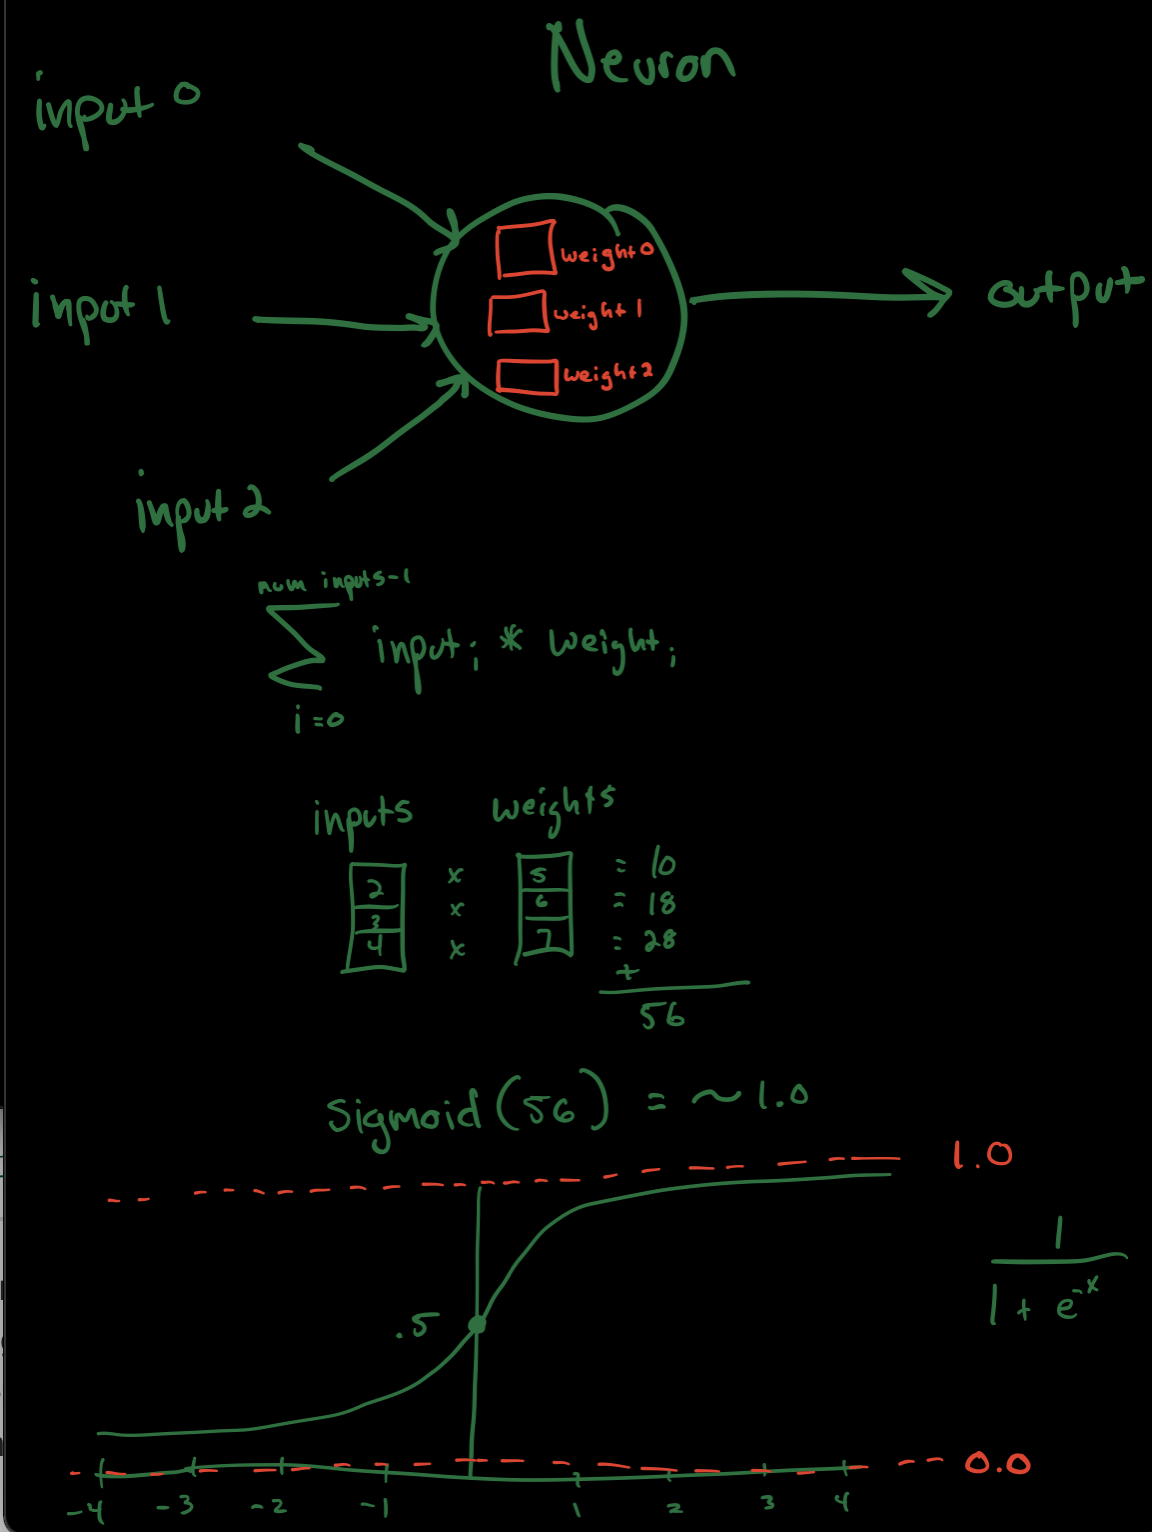 Neuron
input 0
weight 0
input 1
weight 1
output
weight 2
input 2
num inputs-1
∑ inputᵢ * weightᵢ
i=0
inputs weights
2 x 5 = 10
3 x 6 = 18
4 x 7 = 28
+
56
Sigmoid(56) = ~1.0
1.0
1
1 + e^-x
.5
0.0
-4 -3 -2 -1 1 2 3 4